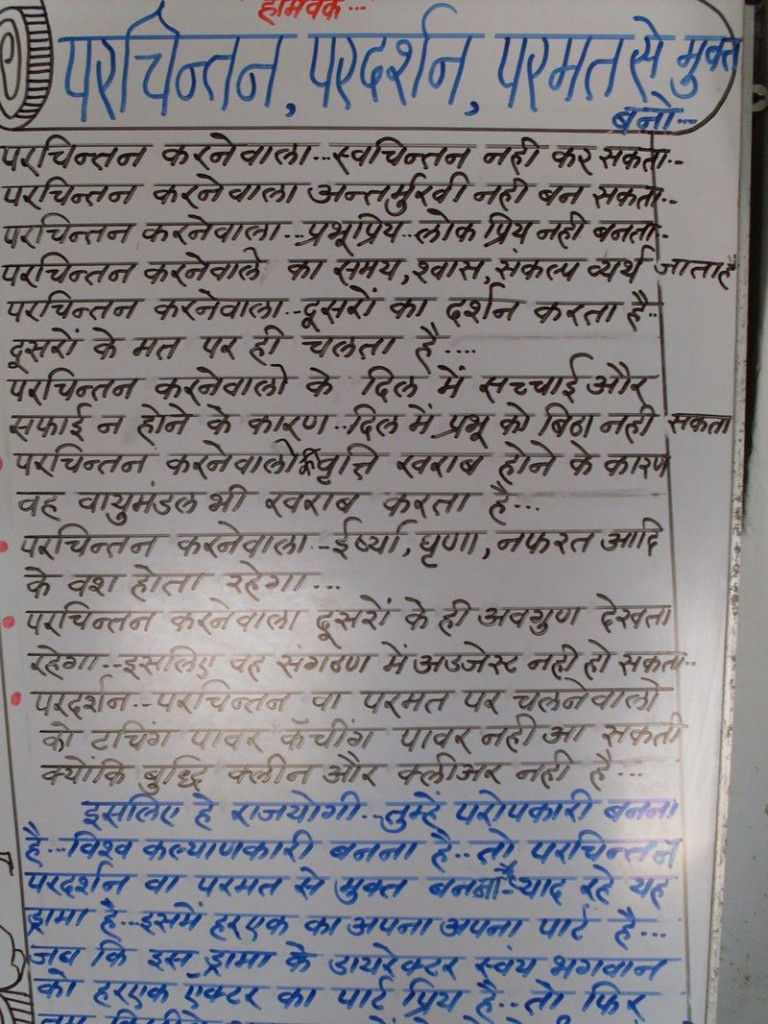 होमवर्क...
परचिन्तन, परदर्शन, परमत से मुक्त
बनो...
परचिन्तन करनेवाला...स्वचिन्तन नही कर सकता..
परचिन्तन करनेवाला अन्तर्मुखी नही बन सकता..
परचिन्तन करनेवाला...प्रभूप्रिय..लोक प्रिय नही बनता.
परचिन्तन करनेवाले का समय, श्वास, संकल्प व्यर्थ जाता है
परचिन्तन करनेवाला..दूसरों का दर्शन करता है..
दूसरों के मत पर ही चलता है....
परचिन्तन करनेवालो के दिल में सच्चाई और
सफाई न होने के कारण..दिल में प्रभू को बिठा नही सकता
परचिन्तन करनेवालो की वृत्ति खराब होने के कारण
वह वायुमंडल भी खराब करता है...
परचिन्तन करनेवाला..ईर्ष्या, घृणा, नफरत आदि
के वश होता रहेगा...
परचिन्तन करनेवाला दूसरों के ही अवगुण देखता
रहेगा..इसलिए वह संगठण में अडजेस्ट नही हो सकता..
परदर्शन..परचिन्तन वा परमत पर चलनेवालो
को टचिंग पावर कॅचींग पावर नही आ सकती
क्योकि बुध्दि क्लीन और क्लीअर नही है...
इसलिए हे राजयोगी..तुम्हे परोपकारी बनना
है...विश्व कल्याणकारी बनना है..तो परचिन्तन
परदर्शन वा परमत से मुक्त बनना है याद रहे यह
ड्रामा है...इसमें हरएक का अपना अपना पार्ट है...
जब कि इस ड्रामा के डायरेक्टर स्वंय भगवान
को हरएक ऍक्टर का पार्ट प्रिय है..तो फिर